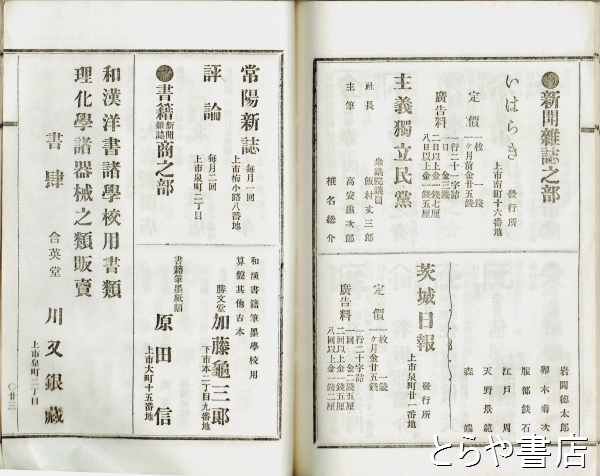 新聞雜誌之部
いはらき
發行所
上市南町十六番地
定價
一枚 一錢
一ケ月前金廿五錢
廣告料
一行二十一字詰
一日 金三錢
二日以上金一錢七厘
八日以上金一錢五厘
主義獨立民黨
衆議院議員
社長 飯村丈三郎
主筆 高安龜次郎
椎名総介
茨城日報
發行所
上市泉町廿一番地
定價
一枚 一錢
一ケ月金廿五錢
廣告料
一行二十字詰
一回金二錢五厘
二回以上金一錢五厘
八回以上金一錢二厘
岩間德太郎
卯木菊次
服部鉄石
江戸周
天野景範
森
常陽新誌
每月一回
上市梅小路八番地
評論
每月二回
上市泉町二丁目
書籍新聞雜誌商之部
和漢洋書諸學校用書類
理化學諸器械之類販賣
書肆
合英堂
川又銀藏
上市泉町二丁目
和漢書籍筆墨學校用
算盤其他古本
勝文堂
加藤龜三郎
下市本二丁目九番地
書籍筆墨紙類
原田信
上市大町十五番地
〇廿三
とらや書店